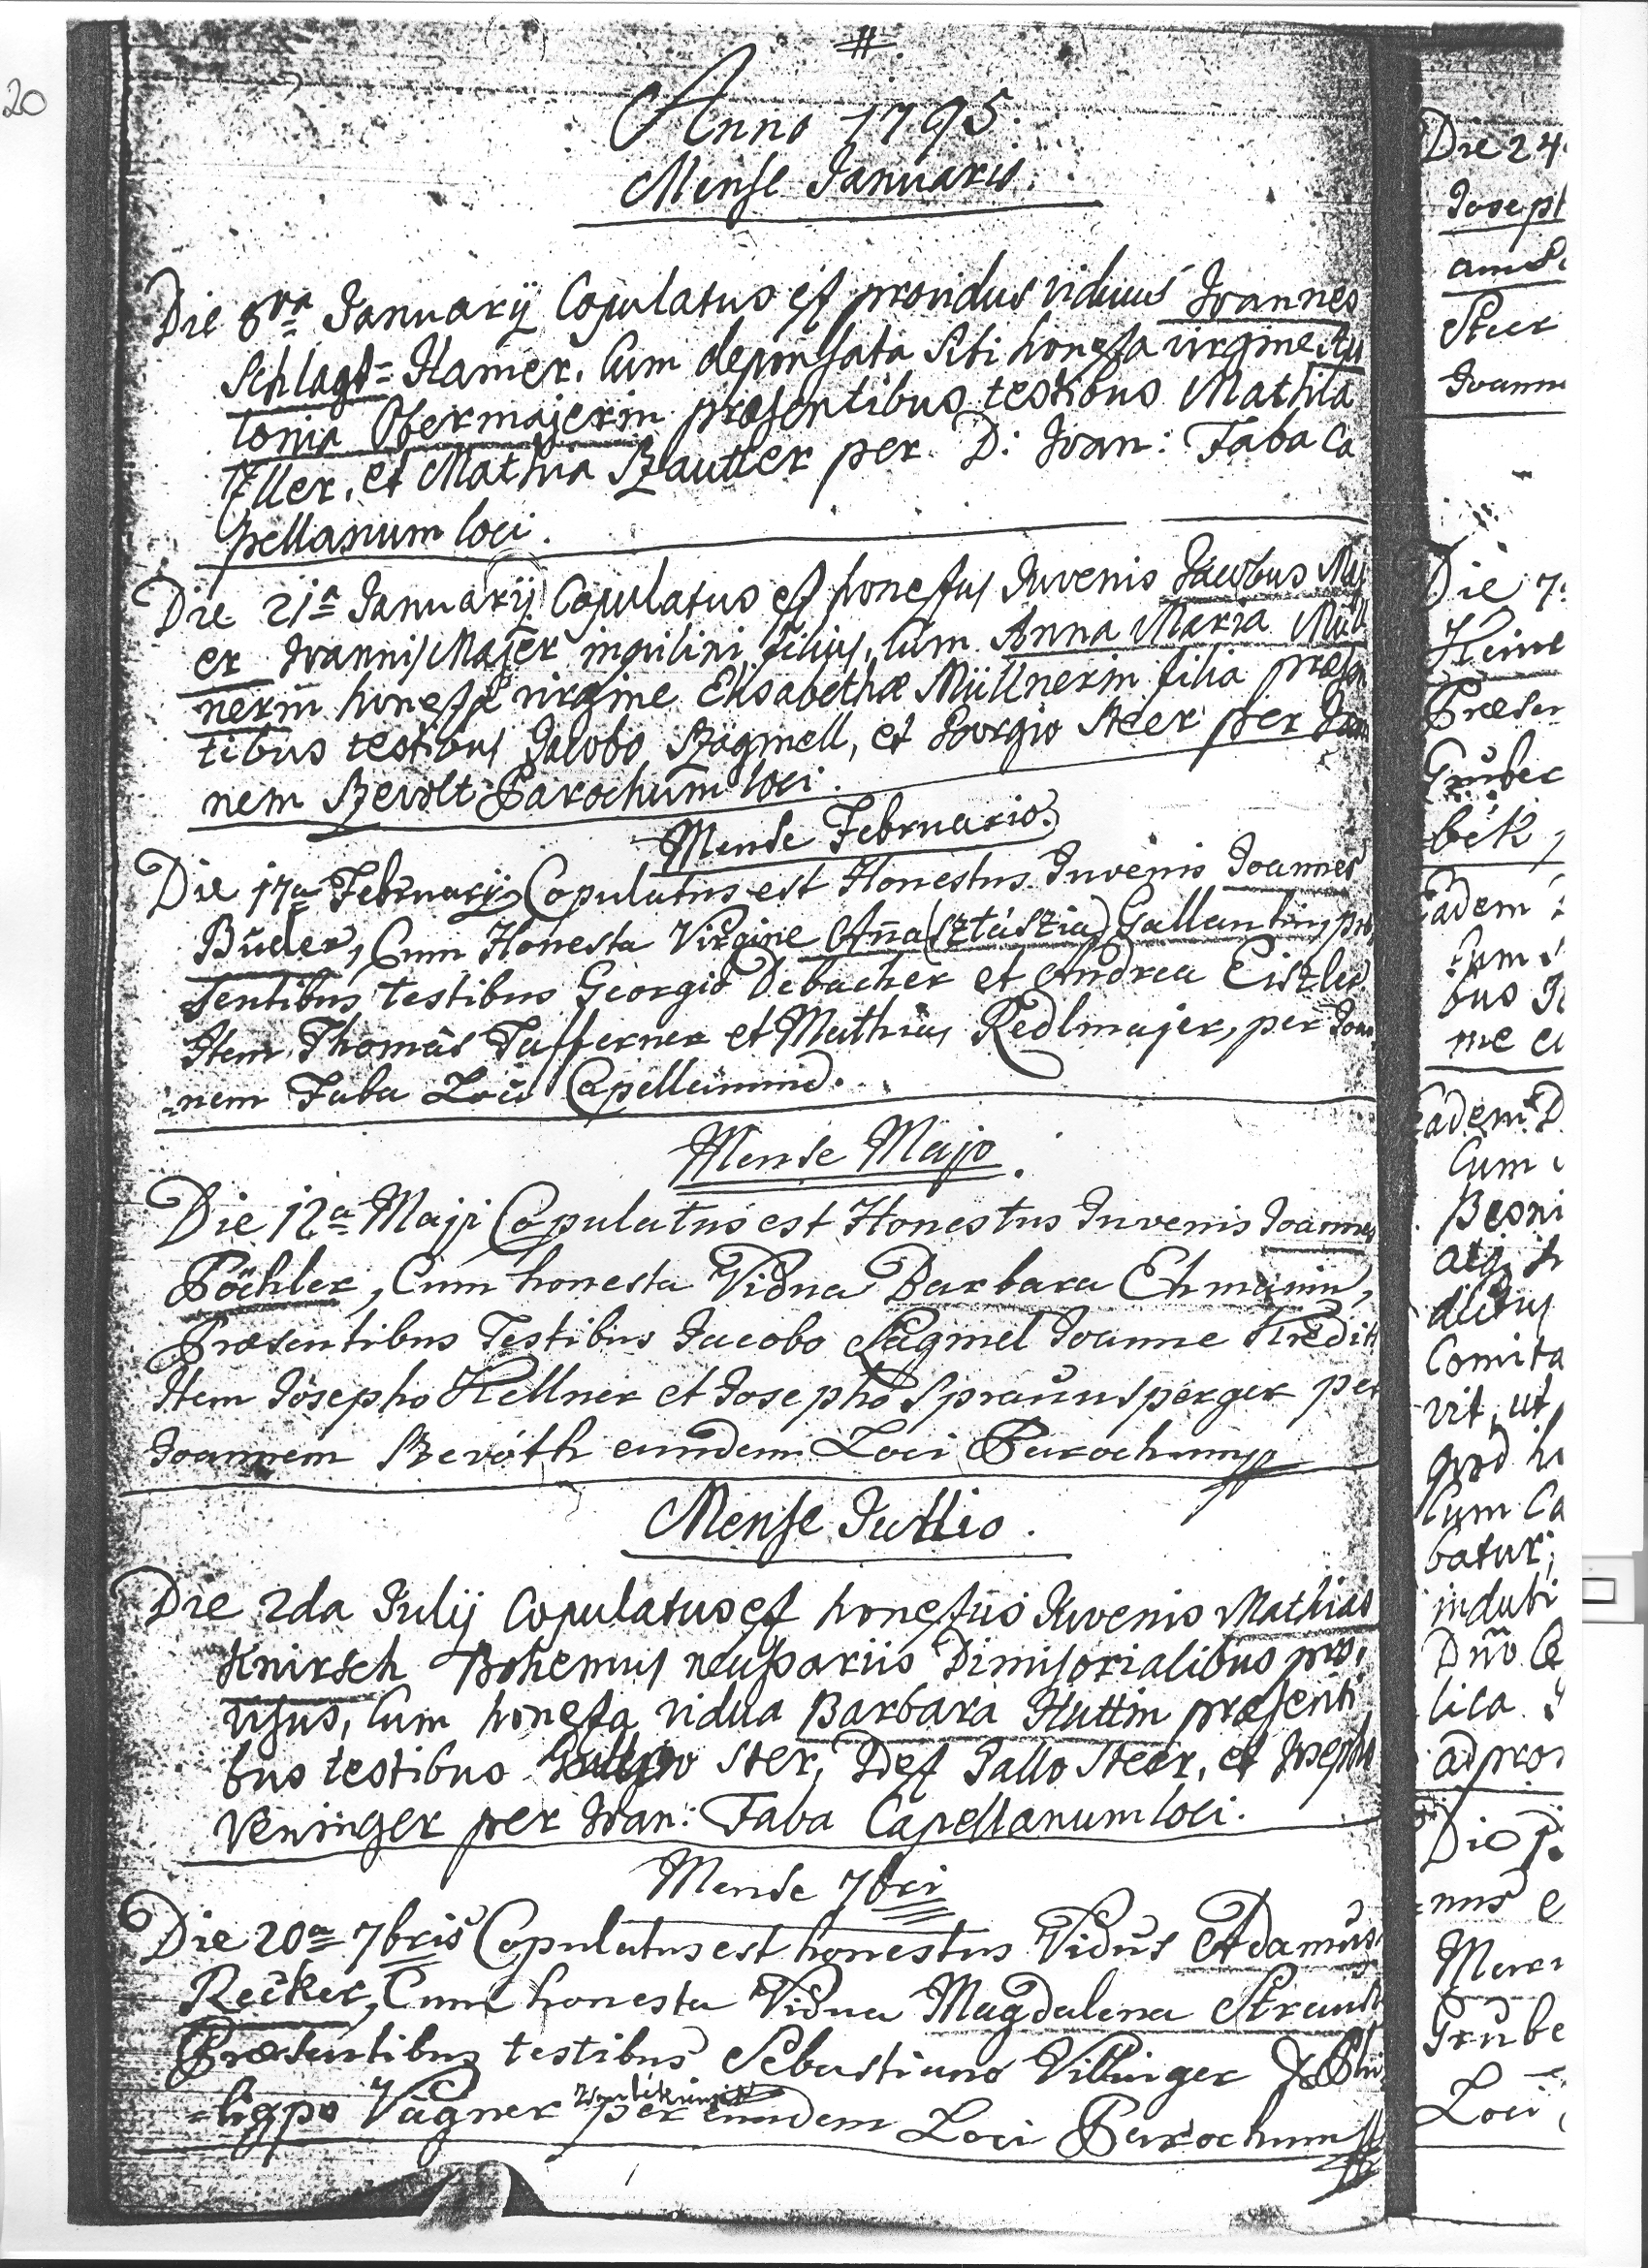 20
Anno 1795.
Mense Januario.
Die 8va Januarij Copulatus est providus viduus Joannes
Schlagd=Hamer, Cum deponsata Sibi honesta virgine An
tonia Obermajerin præsentibus testibus Mathia
Iller, et Mathia Szautter per D: Joan: Faba Ca
pellanum loci.
Die 21a Januarij Copulatus est honestus Juvenis Jacobus Maj
er Joannis Majer inquilini filius, Cum Anna Maria Müll
nerin honesta virgine Elisabethæ Müllnerin filia præsen
tibus testibus Jacobo Szagmell, et Georgio Steer per Joan
nem Szevolt Parochum loci.
Mense Februario.
Die 17a Februarij Copulatus est Honestus Juvenis Joannes
Buder, Cum Honesta Virgine Aña(sztászia) Gallantin, præ
sentibus testibus Georgio Debacher et Andrea Eiszler
Item Thomas Tafferner et Mathias Redlmajer, per Joan
=nem Faba Loci Capellanum.
Mense Majo.
Die 12a Maji Copulatus est Honestus Juvenis Joannes
Pöchler, Cum honesta Vidua Barbara Ehmanin,
Præsentibus Testibus Jacobo Sagmel Joanne Kredit
Item Josepho Kellner et Josepho Spraunsperger per
Joannem Szevóth eundem Loci Parochum
Mense Jullio.
Die 2da Julij Copulatus est honestus Juvenis Mathias
Knirsch Bohemus necessariis Dimisorialibus pro,
visus, Cum honesta vidua Barbara Huttin præsenti
bus testibus Ster, Def Gallo Steer, et Josepho
Veninger per Joan: Faba Capellanum loci.
Mense 7bri
Die 20a 7bris Copulatus est honestus Vidus Adamus
Recker, Cum honesta Vidua Magdalena Straus
Præsentibus testibus Sebastiano Villinger Phi
=lippo Vagner per eundem Loci Parochum
Die 24
Joseph
Steer
Joann
Die 7
Heine
Præsen
Gruber
bek,
Eadem
Cum
bus
me
Eadem D
Cum
Besni
Comita
vit, ut
quod
Cum Ca
batur;
indubi
lica
Die
nus
Grube
Loci